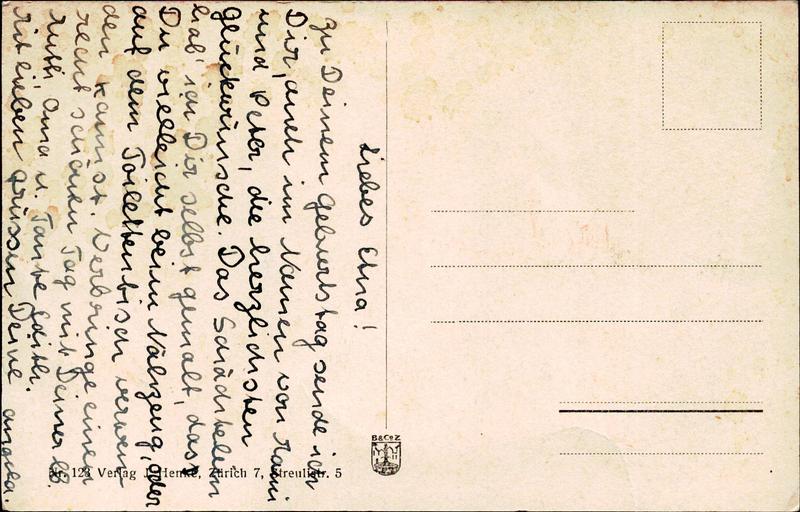 Liebes Etna!
Zu Deinem Geburtstag sende ich
Dir, auch im Namen von Rami
und Peter, die herzlichsten
Glückwünsche. Das Schächtelein
hab' ich Dir selbst gemalt, dass
Du vielleicht beim Nähzeug, oder
auf dem Toilettentisch verwen-
den kannst. Verbringe einen
recht schönen Tag mit Deiner lb.
Mutti, Oma u. Tante Edith.
Mit lieben Grüssen Deine
B&CoZ
Nr. 123 Verlag J. Henke, Zürich 7, Streulistr. 5